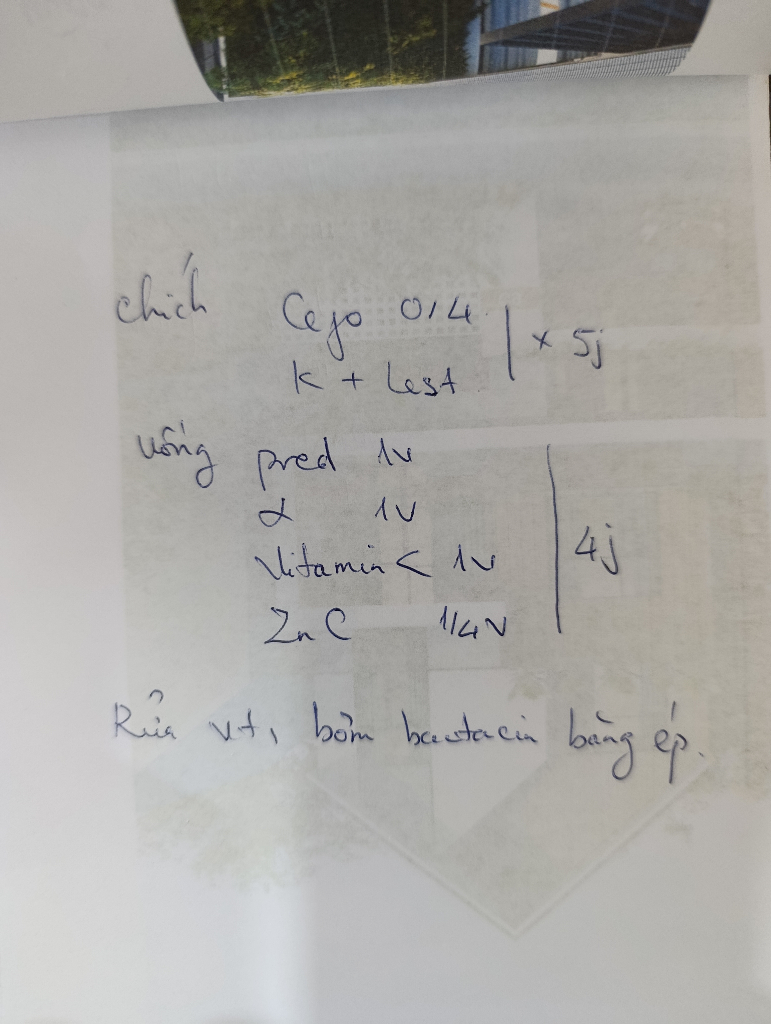 chích Cejo 0,4 | x 5j
K + Lest
uống pred 1v
α 1v
Vitamin C 1v
ZnC 1/4v | 4j
Rửa vt, bơm bactacin băng ép.